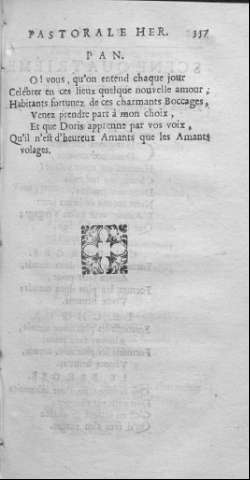 PASTORALE HER. 357
PAN.
O! vous, qu'on entend chaque jour
Celébrer en ces lieux quelque nouvelle amour;
Habitants fortunez de ces charmants Boccages,
Venez prendre part à mon choix,
Et que Doris apprenne par vos voix,
Qu'il n'est d'heureux Amants que les Amants
volages.